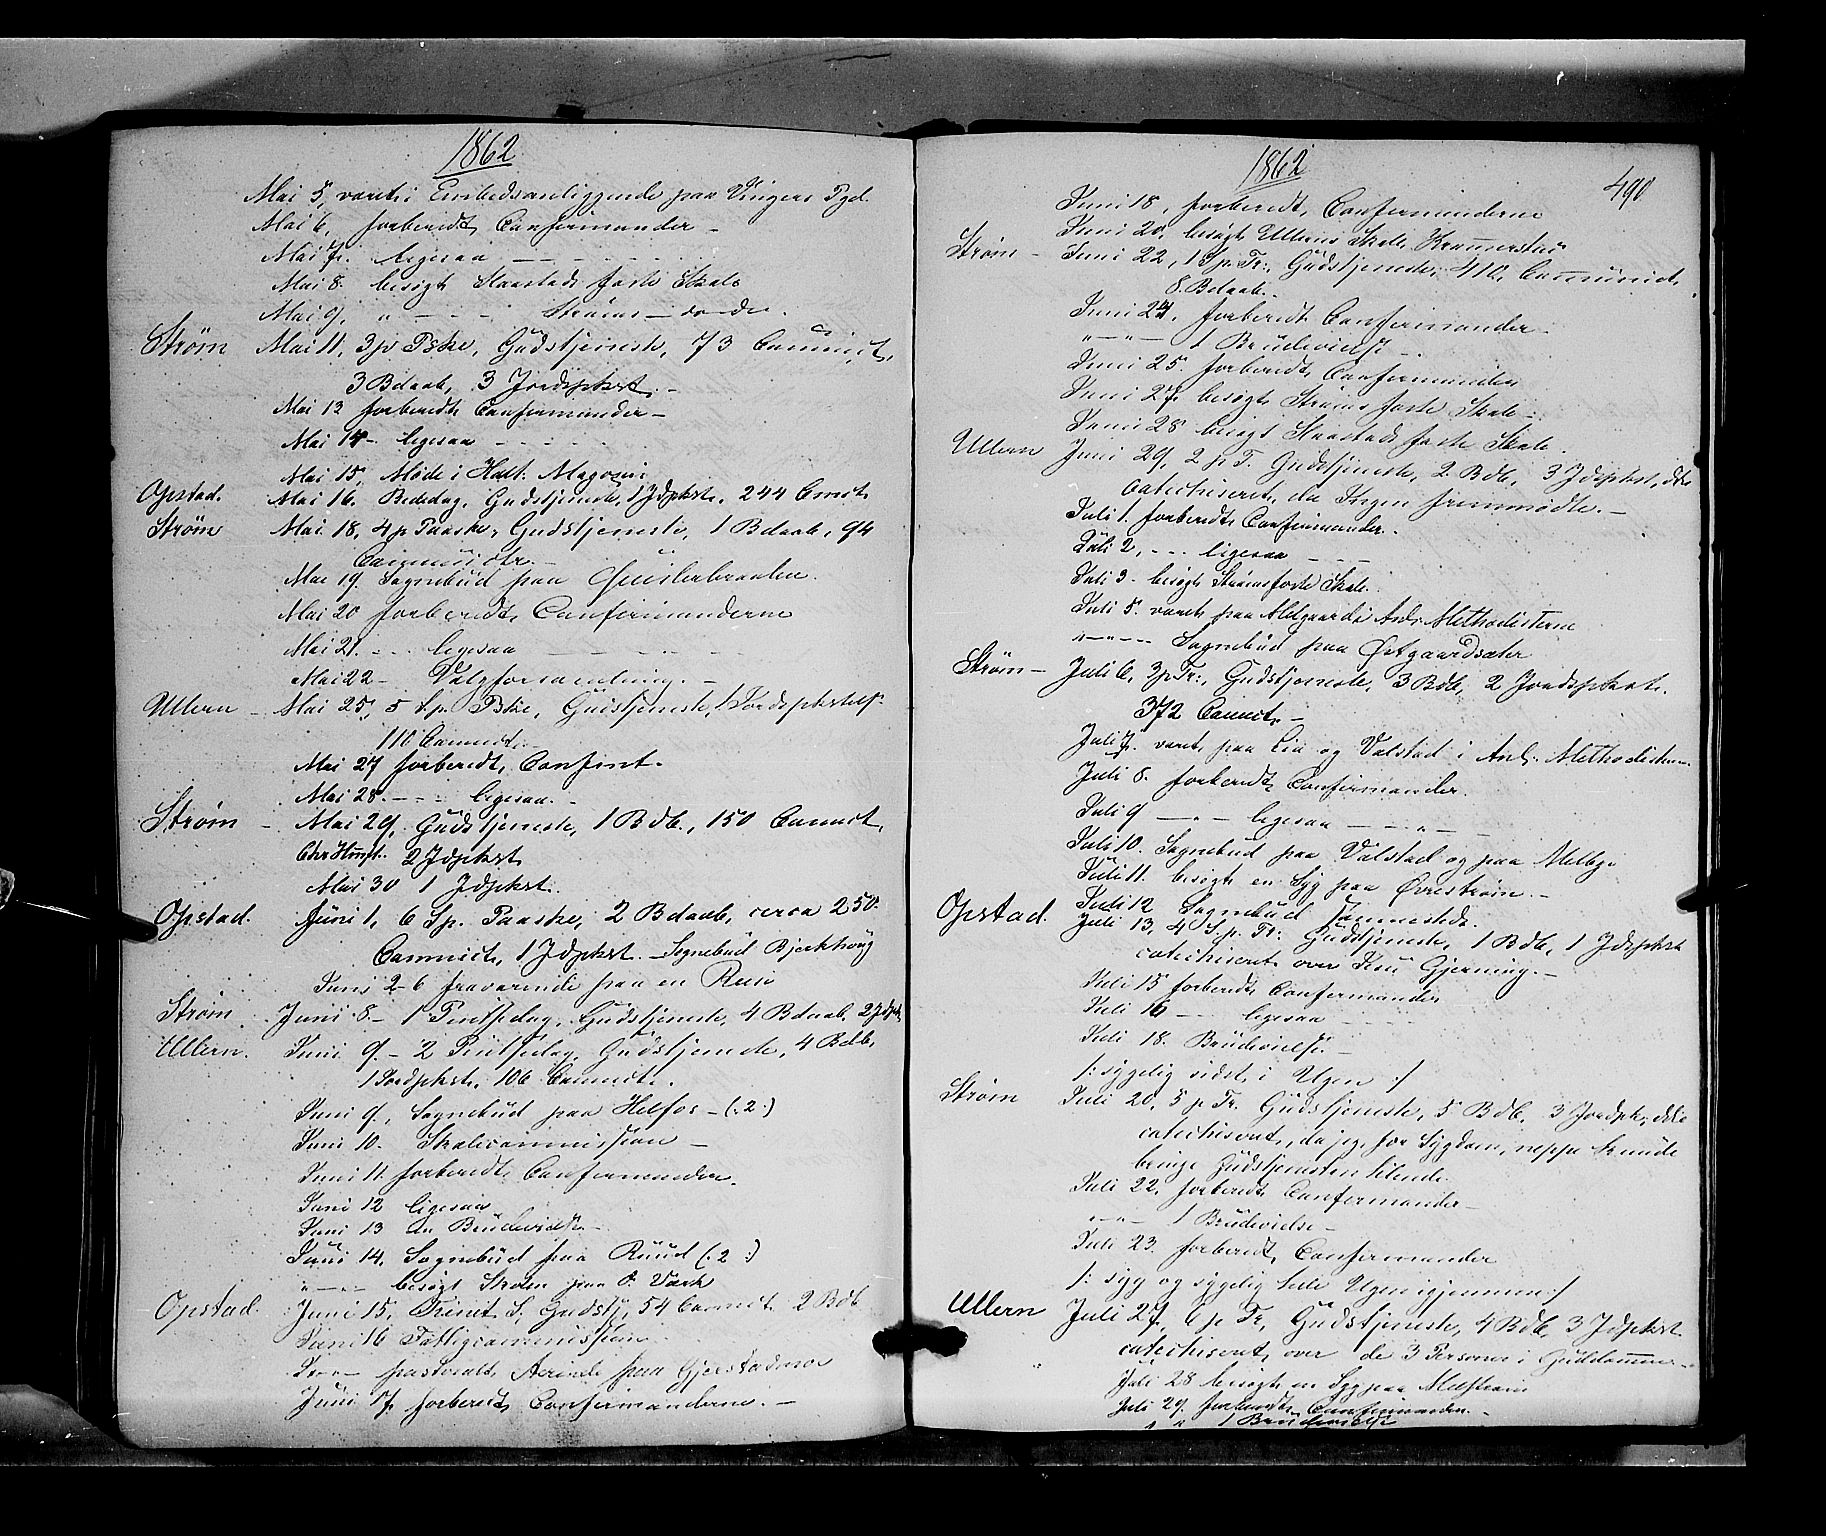 1862
Mai 5, været i Embedsanliggende paa Vingers Pgd.
Mai 6, forberedt Confirmander –
Mai 7. ligesaa – – –
Mai 8. besøgt Skaastads faste Skole
Mai 9, " – – – Strøms – do do.
Strøm Mai 11, 3 p Pske, Gudstjeneste, 73 Communict.
3 Bdaab, 3 Jordspkst. –
Mai 13 forberedt Confirmander –
Mai 14 – ligesaa – – – –
Mai 15, Møde i Magazin
Opstad. Mai 16. Bededag, Gudstjeneste, 1 Jdpkst. 244 Cmct.
Strøm Mai 18, 4 p Paaske, Gudstjeneste, 1 Bdaab, 94
Communictr. –
Mai 19. Sognebud paa
Mai 20 forberedt Confirmanderne
Mai 21. – – ligesaa – – –
Mai 22 – Valgforsamling. –
Ullern – Mai 25, 5 S. p. Pske, Gudstjeneste, 1 Jordspkstelse
110 Communct.
Mai 27 forberedt Confirmt.
Mai 28. – – – ligesaa. –
Strøm – Mai 29, Gudstjeneste, 1 Bdb., 150 Commct.
Chr Himft. 2 Jdpkst
Mai 30 1 Jdpkst.
Opstad. Juni 1, 6 S p. Paaske, 2 Bdaab, circa 250
Commict, 1 Jdpkst. – Sognebud Bjerkhoug
Juni 2–6 fraværende paa en Reise
Strøm. Juni 8. – 1 Pintsedag, Gudstjeneste, 4 Bdaab, 2 Jdpk
Ullern. Juni 9. – 2 Pintsedag, Gudstjeneste, 4 Bdb,
1 Jordpkst, 106 Commct.
Juni 9, Sognebud paa Helfos – (: 2 :)
Juni 10. Skolecommission –
Juni 11. forberedt Confirmander.
Juni 12 ligesaa
Juni 13 en Brudevielse –
Juni 14, Sognebud paa Ruud (: 2 :)
" – – – besøgt Skolen paa
Opstad. Juni 15, Trinit. S, Gudstj, 54 Commct. 2 Bdb
Juni 16 Fattigcommission
Ærinde paa Gjerstadmoe
Juni 17. forberedt Confirmanderne. –
1862
490
Juni 18, forberedt Confirmanderne
Juni 20, besøgt Ullerns Skole
Strøm – Juni 22, 1 S p. Tr:, Gudstjeneste, 410, Communict.
8. Bdaab.
Juni 24, forberedt Confirmander –
" – " – 1 Brudevielse –
Juni 25. forberedt Confirmander
Juni 27. besøgt Strøms faste Skole –
Juni 28 besøgt Skaastads faste Skole.
Ullern Juni 29, 2 p T. Gudstjeneste, 2 Bdb, 3 Jdspkst, ikke
Catechiseret, da Ingen fremmødte. –
Juli 1. forberedt Confirmander.
Juli 2, – – ligesaa – – –
Juli 3. besøgt Strøms faste Skole.
Juli 5. været paa i Anl. Methodisterne
" – " – – – Sognebud paa Østgaardsæter
Strøm – Juli 6, 3 p Tr:, Gudstjeneste, 3 Bdb, 2 Jordspkast.
372 Commct. –
Juli 7. været paa Lia og Valstad i Anl. Methodisterne
Juli 8. forberedt Confirmander.
Juli 9 – " – ligesaa – – " – –
Juli 10. Sognebud paa Valstad og paa Melby.
Juli 11. besøgt en Syg paa Øvrestrøm. –
Juli 12 Sognebud
Opstad. Juli 13, 4 S. p. Tr: Gudstjeneste, 1 Bdb, 1 Jdspkst
catechiseret over Jesu Gjerning. –
Juli 15 forberedt Confirmander
Juli 16 – – – ligesaa – – –
Juli 18. Brudevielse. –
/: sygelig sidst i Ugen :/
Strøm Juli 20, 5 p Tr. Gudstjeneste, 5 Bdb, 3 Jordpk, ikke
catechiseret, da jeg, for Sygdom, neppe kunde
bringe Gudstjenesten tilende.
Juli 22, forberedt Confirmander –
" – " – 1 Brudevielse –
Juli 23. forberedt Confirmander
/: syg og sygelig hele Ugen igjennem :/
Ullern Juli 27, 6 p Tr, Gudstjeneste, 4 Bdb, 3 Jdpkst
catechiseret over de 3 Personer i Guddommen –
Juli 28 besøgt en Syg paa
Juli 29. forberedt Confirmander. –
" " 1 Brudevielse